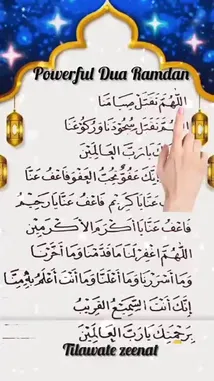 Powerful Dua Ramdan
اللّٰهُمَّ تَقَبَّلْ صِيَامَنَا
تَقَبَّلْ سُجُودَنَا وَرُكُوعَنَا
يَارَبَّ الْعَالَمِيْنَ
عَفُوٌّ تُحِبُّ الْعَفْوَ فَاعْفُ عَنَّا
كَرِيْمُ فَاعْفُ عَنَّا يَارَحِيْمُ
فَاعْفُ عَنَّا يَا أَكْرَمَ الْأَكْرَمِيْنَ
اللّٰهُمَّ اغْفِرْلَنَا مَا قَدَّمْنَا وَمَا أَخَّرْنَا
وَمَا أَسْرَرْنَا وَمَا أَعْلَنَّا وَمَا أَنْتَ أَعْلَمُ بِهِ مِنَّا
إِنَّكَ أَنْتَ السَّمِيْعُ الْقَرِيْبُ
بِرَحْمَتِكَ يَارَبَّ الْعَالَمِيْنَ
Tilawate zeenat